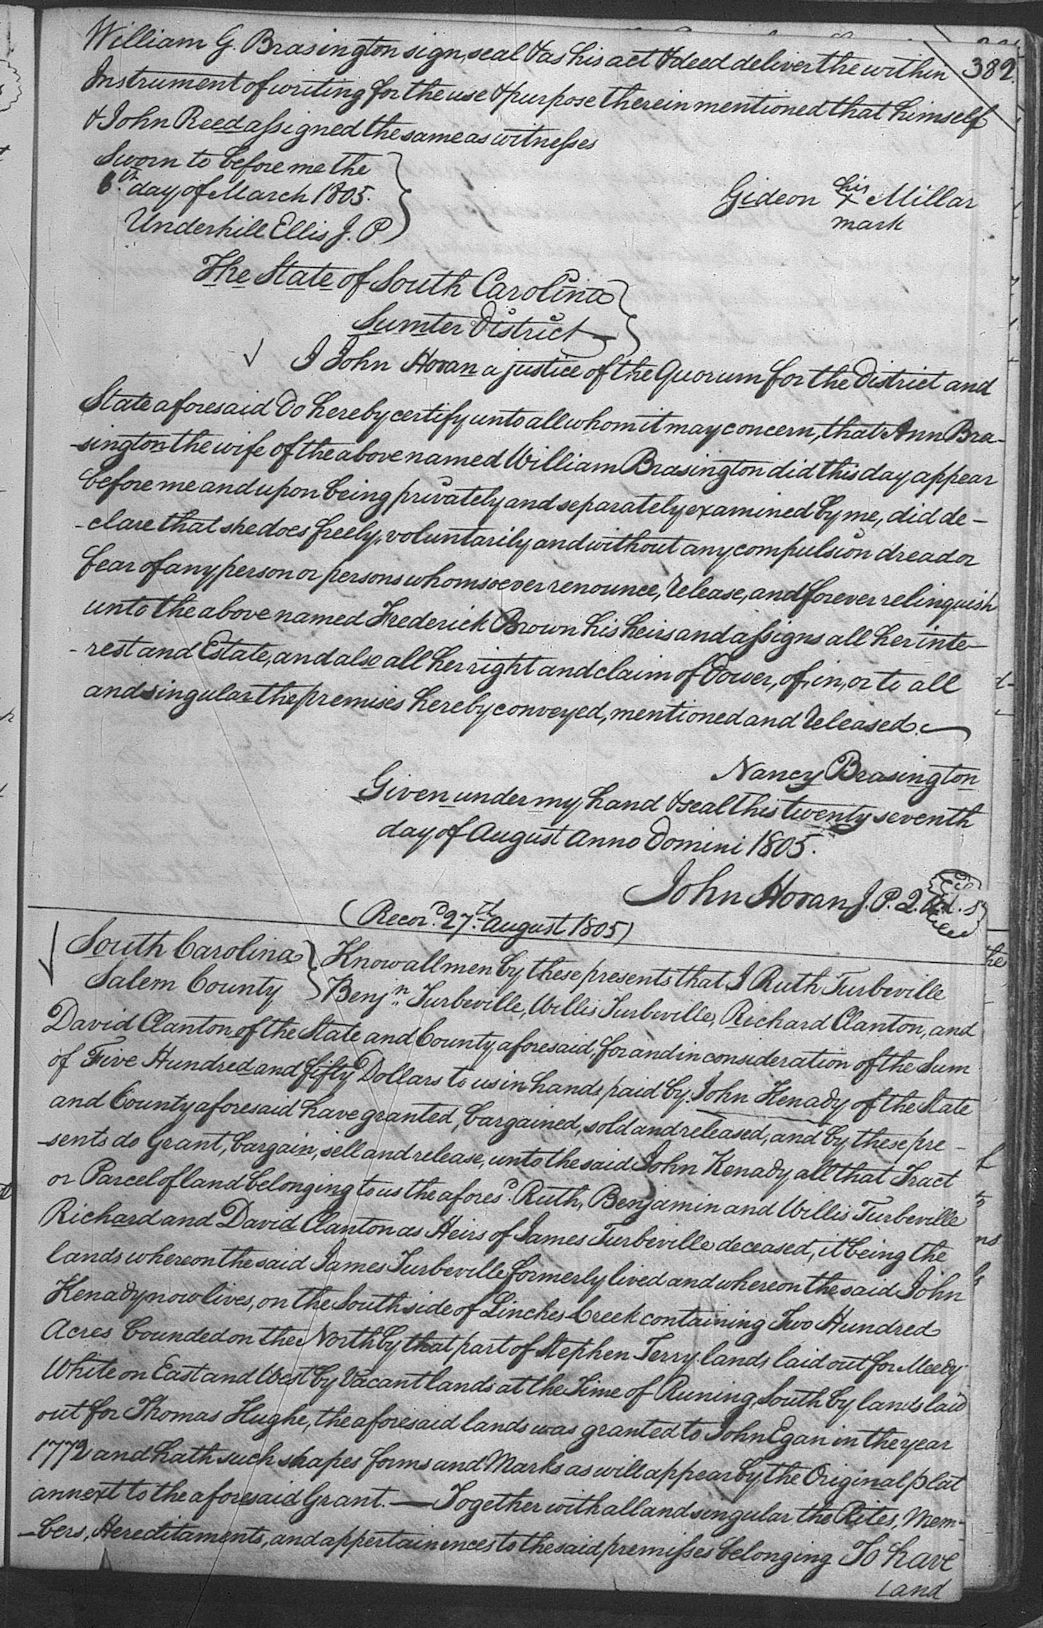 382
William G. Brasington sign, seal & as his act & deed deliver the within
Instrument of writing for the use & purpose therein mentioned that himself
& John Reed assigned the same as witnesses
Sworn to before me the
6th day of March 1805.
Underhill Ellis J. P.
Gideon his x mark Millar
The State of South Carolina
Sumter District
I John Horan a justice of the Quorum for the District and
State aforesaid Do hereby certify unto all whom it may concern, that Ann Bra-
-sington the wife of the above named William Brasington did this day appear
before me and upon being privately and separately examined by me, did de-
-clare that she does freely, voluntarily and without any compulsion dread or
fear of any person or persons whomsoever renounce, release, and forever relinquish
unto the above named Frederick Brown his heirs and assigns all her inte-
-rest and Estate, and also all her right and claim of Dower, of, in, or to all
and singular the premises hereby conveyed, mentioned and released.
Nancy Brasington
Given under my hand & seal this twenty seventh
day of August Anno Domini 1805.
John Horan J. P. Q.
(Record. 27th August 1805)
South Carolina
Salem County
Know all men by these presents that I Ruth Turbeville
Benjn Turbeville, Willis Turbeville, Richard Clanton, and
David Clanton of the State and County aforesaid, for and in consideration of the Sum
of Five Hundred and fifty Dollars to us in hand paid by John Kenady of the State
and County aforesaid have granted, bargained, sold and released, and by these pre-
-sents do Grant, bargain, sell and release, unto the said John Kenady all that Tract
or Parcel of land belonging to us the aforesd. Ruth, Benjamin and Willis Turbeville
Richard and David Clanton as Heirs of James Turbeville deceased, it being the
lands whereon the said James Turbeville formerly lived and whereon the said John
Kenady now lives, on the South side of Linches Creek containing Two Hundred
Acres bounded on the North by that part of Stephen Terry lands laid out for Meedy
White on East and West by Vacant lands at the Time of Runing, South by lands laid
out for Thomas Hughe, the aforesaid lands was granted to John Egan in the year
1772 and hath such shapes forms and Marks as will appear by the Original plat
annext to the aforesaid Grant. — Together with all and singular the Rites, Mem-
-bers, Hereditaments, and appertainences to the said premisses belonging To have
and